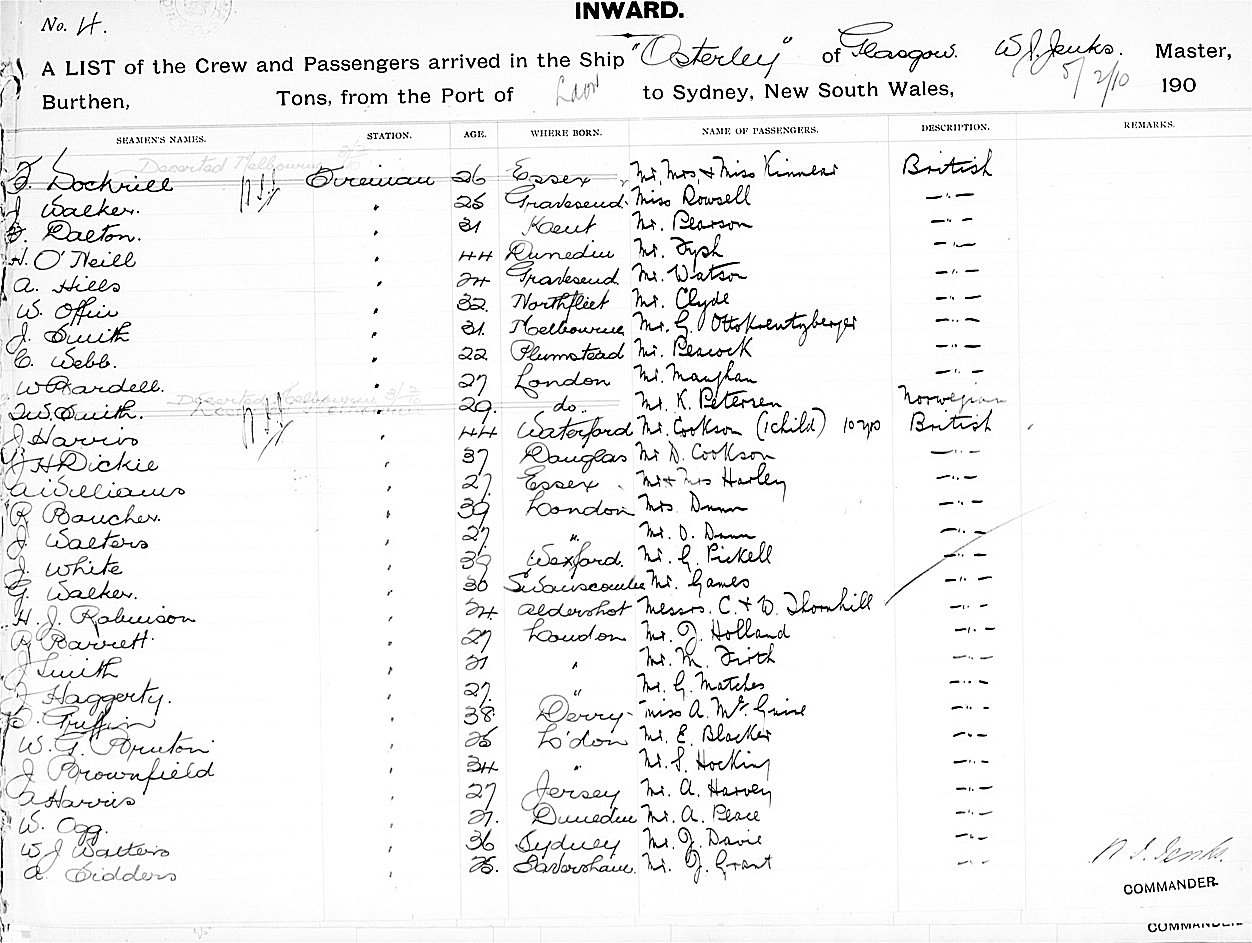 INWARD.
No. 4.
A LIST of the Crew and Passengers arrived in the Ship "Osterley" of Glasgow. W. J. Jenks. Master,
Burthen, Tons, from the Port of Lon to Sydney, New South Wales, 5/2/10 190
SEAMEN'S NAMES. STATION. AGE. WHERE BORN. NAME OF PASSENGERS. DESCRIPTION. REMARKS.
Deserted Melbourne
Dockrill Fireman 26 Essex Mr, Mrs, & Miss Kinnear British
J Walker. " 25 Gravesend. Miss Rowsell —"—
Dalton. " 31 Kent Mr. Pearson —"—
H. O'Neill " 44 Dunedin Mr. Fysh —"—
A. Hills " 24 Gravesend. Mr. Watson —"—
W. Offin " 32. Northfleet Mr. Clyde —"—
J. Smith " 31. Melbourne Mr. G. Ottokrentzberger —"—
C. Webb. " 22 Plumstead Mr. Peacock —"—
W Bardell. " 27 London Mr. Maughan —"—
Deserted Melbourne
Smith. " 29. do. Mr. K. Petersen Norwegian
J Harris " 44 Waterford Mr. Cookson (1 child) 10 yrs British
J H Dickie " 37 Douglas Mr D. Cookson —"—
A Williams " 27 Essex Mr & Mrs Harley —"—
R Baucher. " 39 London Mrs. Dunn —"—
J. Walters " 27 " Mr. D. Dunn —"—
J. White " 39 Wexford. Mr. G. Pickell —"—
G. Walker. " 30 Swanscombe Mr. Games —"—
H. J. Robinson " 24. Aldershot Messrs. C. & W. Thornhill —"—
R Barrett " 27 London Mr. J. Holland —"—
J Smith " 21 " Mr. M. Firth —"—
J Haggerty. " 27. " Mr. G. Matches —"—
Griffin " 38. Derry Miss A. McGuire —"—
W. G. Bruton " 25 L'don Mr. E. Blacker —"—
J Brownfield " 34 " Mr. S. Hocking —"—
A Harris " 27 Jersey Mr. A. Harvey —"—
W. Ogg. " 21. Dunedin Mr. A. Peace —"—
W J Walters " 36 Sydney Mr. J. Davie —"—
A. Sidders " 25. Faversham. Mr. J. Grant —"—
W. J. Jenks.
COMMANDER.
COMMANDER.